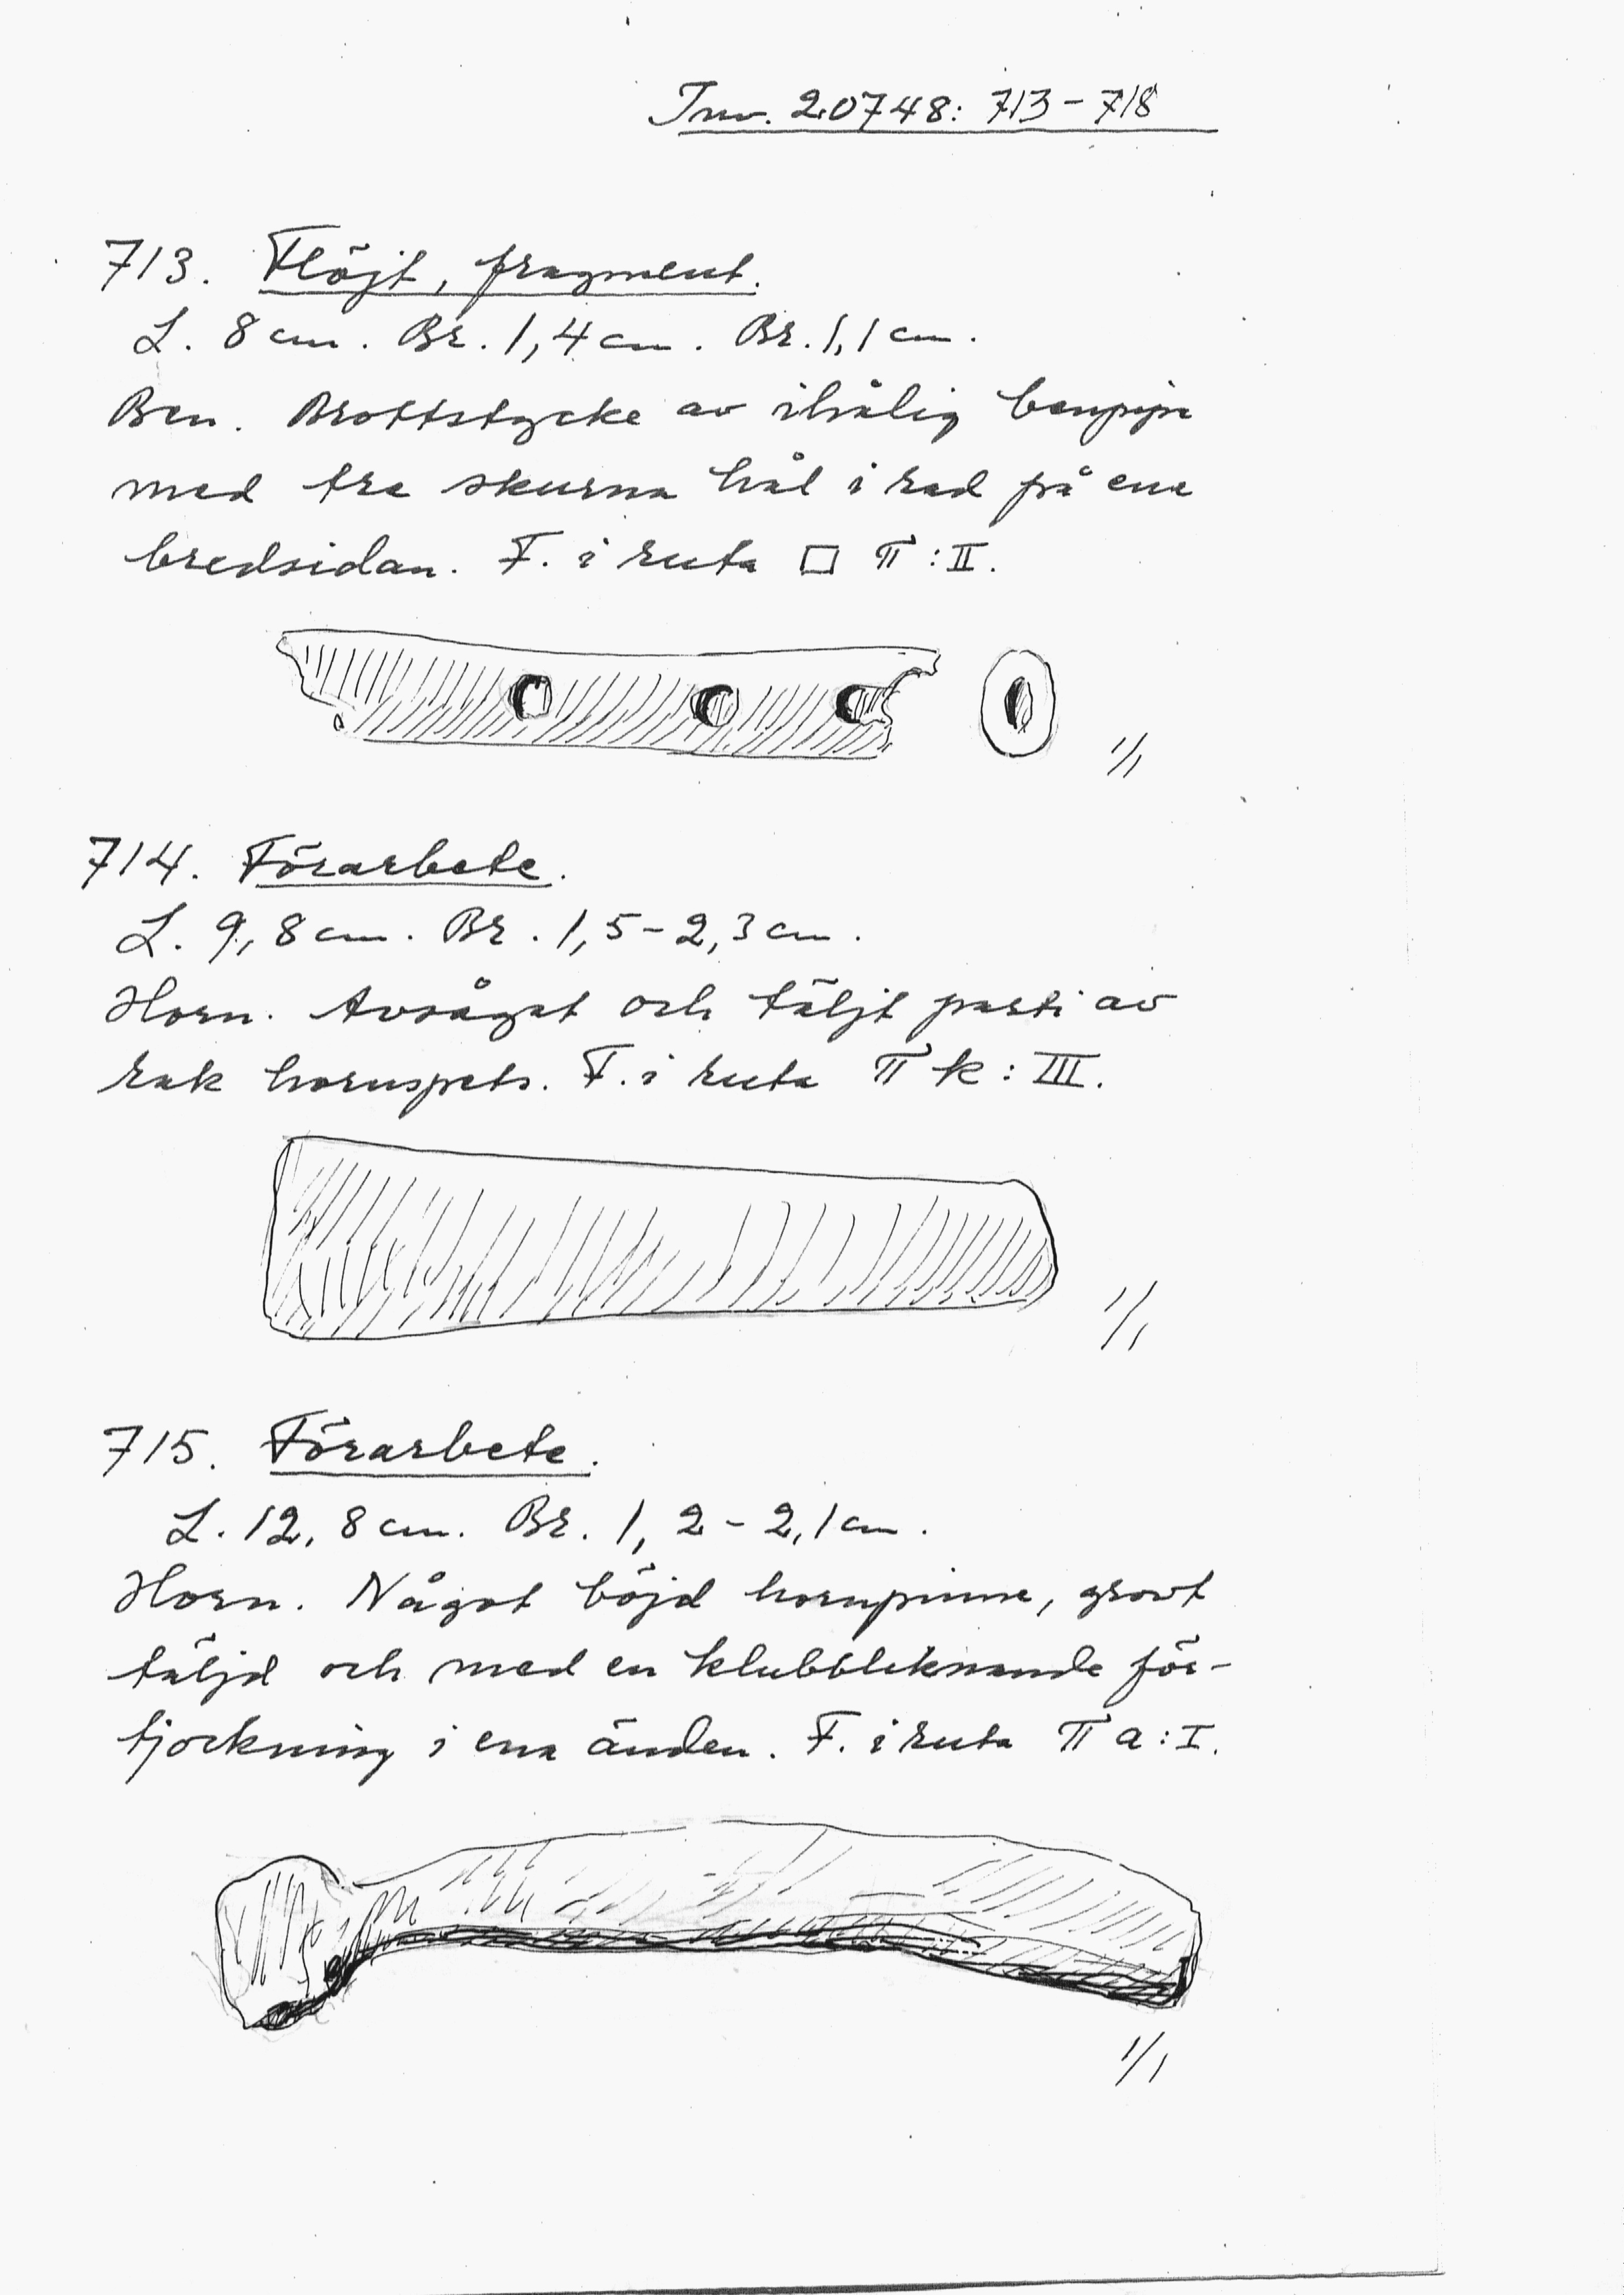 Inv. 20748: 713-718
713. Flöjt, fragment.
L. 8 cm. Br. 1,4 cm. Br. 1,1 cm.
Ben. Brottstycke av ihålig benpipa
med tre skurna hål i rad på ena
bredsidan. F. i ruta □ π : II.
1/1
714. Förarbete.
L. 9,8 cm. Br. 1,5-2,3 cm.
Horn. Avsågat och täljt parti av
rak hornspets. F. i ruta π k : III.
1/1
715. Förarbete.
L. 12,8 cm. Br. 1,2-2,1 cm.
Horn. Något böjd hornpinne, grovt
täljd och med en klubbliknande för-
tjockning i ena änden. F. i ruta π a : I.
1/1